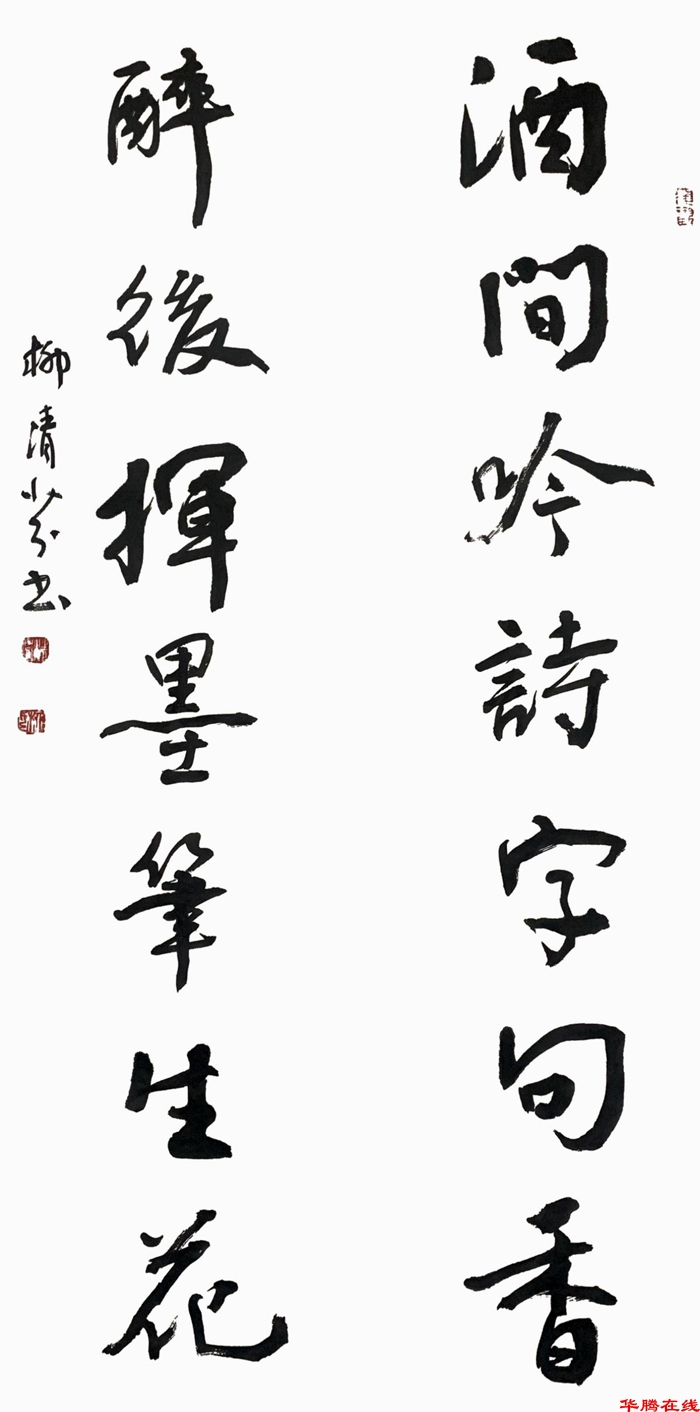 酒間吟詩字句香
醉後揮墨筆生花
柳清芬書
华腾在线